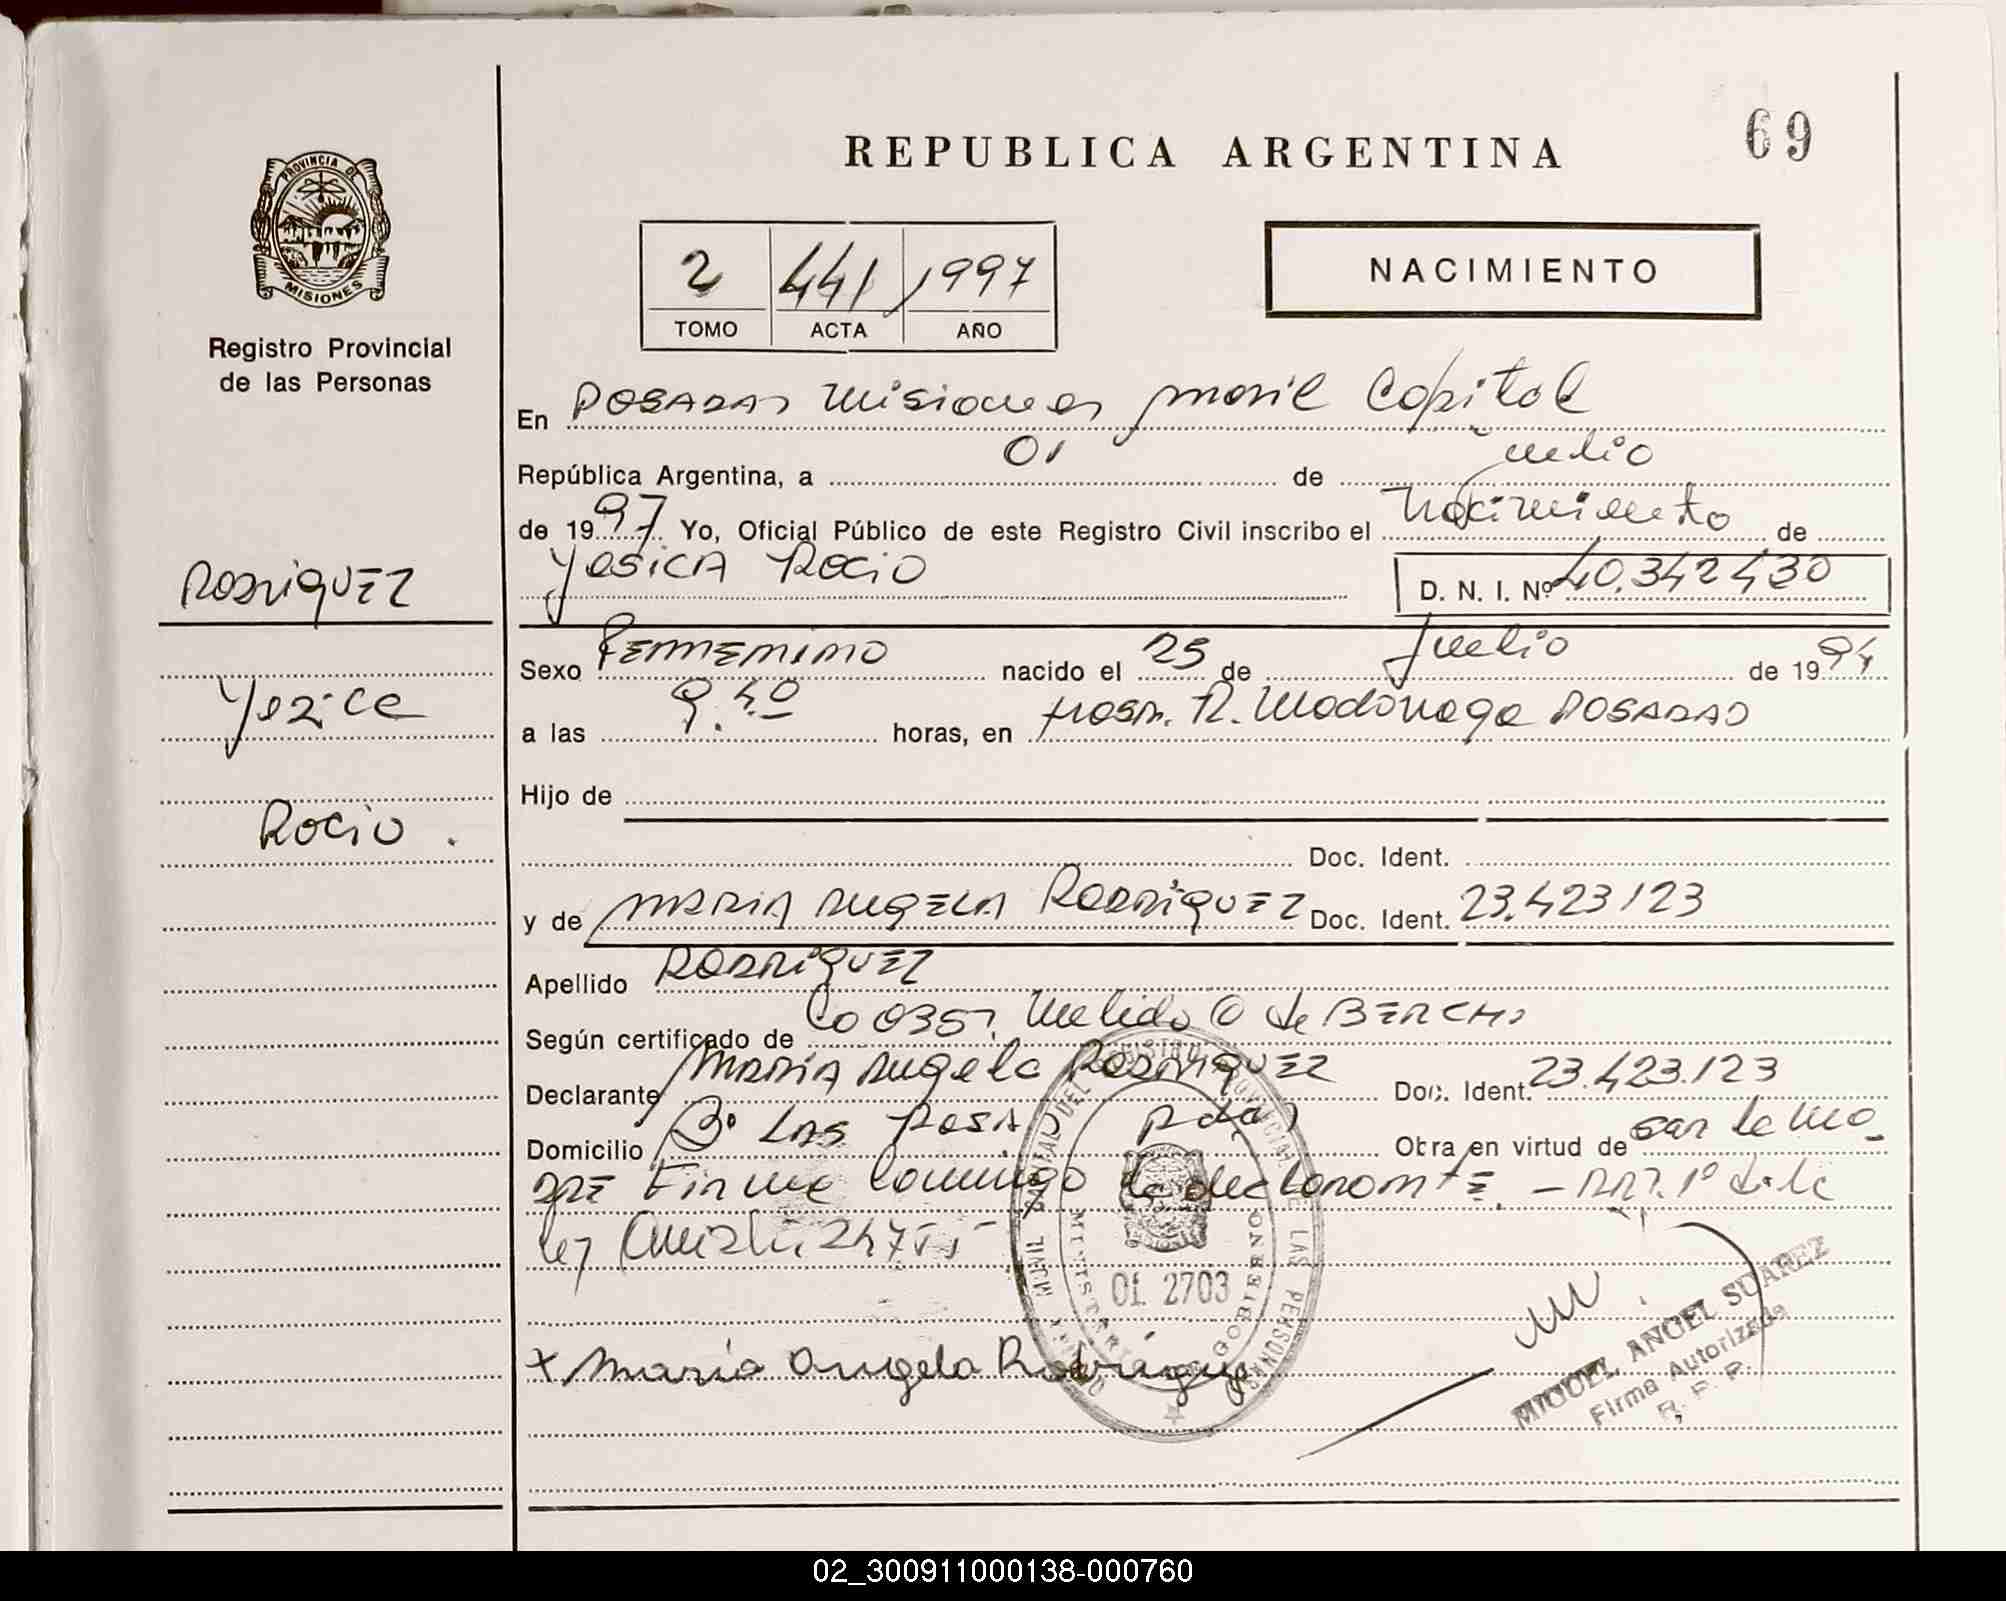 69
REPUBLICA ARGENTINA
PROVINCIA DE
MISIONES
2 441 1997
TOMO ACTA AÑO
NACIMIENTO
Registro Provincial
de las Personas
En POSADAS Misiones movil Capital
República Argentina, a 01 de Julio
de 1997 Yo, Oficial Público de este Registro Civil inscribo el Nacimiento de
Yesica Rocio D. N. I. Nº 40.342430
RODRIGUEZ
Yesica
Rocio.
Sexo Femenino nacido el 25 de Julio de 1994
a las 9.40 horas, en Hosp. R. Madariaga POSADAS
Hijo de
Doc. Ident.
y de MARIA ANGELA RODRIGUEZ Doc. Ident. 23.423123
Apellido RODRIGUEZ
Según certificado de de
Declarante MARIA Angela RODRIGUEZ Doc. Ident. 23.423.123
Domicilio Bº LAS ROSAS Pdas Otra en virtud de
DRE Firma conmigo la declarante. - ART. 1º de la
ley 24755
01. 2703
x Maria Angela Rodriguez
MIGUEL ANGEL SUAREZ
Firma Autorizada
R. P. P.
02_300911000138-000760